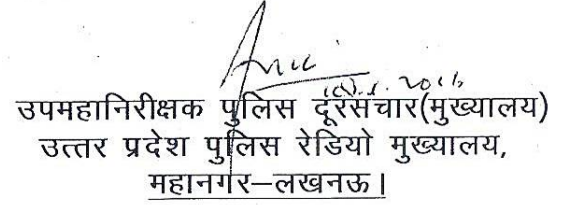 उपमहानिरीक्षक पुलिस दूरसंचार(मुख्यालय)
उत्तर प्रदेश पुलिस रेडियो मुख्यालय,
महानगर–लखनऊ।